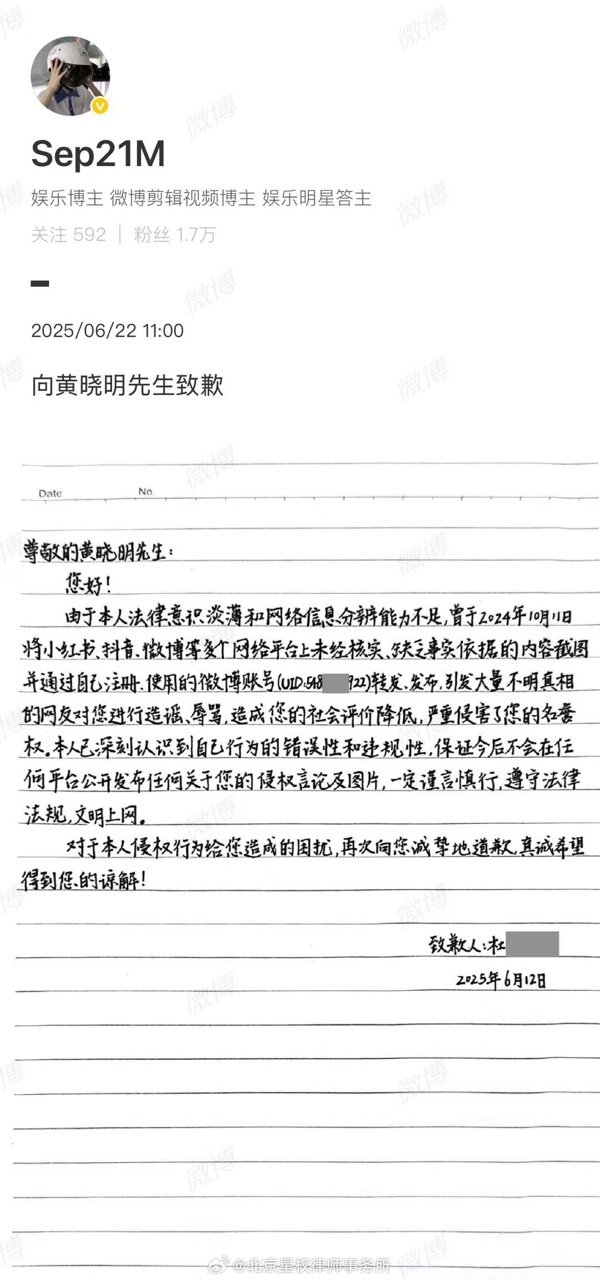 Sep21M
娱乐博主 微博剪辑视频博主 娱乐明星答主
关注 592 | 粉丝 1.7万
2025/06/22 11:00
向黄晓明先生致歉
Date No.
尊敬的黄晓明先生：
您好！
由于本人法律意识淡薄和网络信息分辨能力不足，曾于2024年10月11日
将小红书、抖音、微博等多个网络平台上未经核实、缺乏事实依据的内容截图
并通过自己注册、使用的微博账号(UID:568 922)转发、发布，引发大量不明真相
的网友对您进行造谣、辱骂，造成您的社会评价降低，严重侵害了您的名誉
权。本人已深刻认识到自己行为的错误性和违规性，保证今后不会在任
何平台公开发布任何关于您的侵权言论及图片，一定谨言慎行，遵守法律
法规，文明上网。
对于本人侵权行为给您造成的困扰，再次向您诚挚地道歉，真诚希望
得到您的谅解！
致歉人：杜
2025年6月12日
@北京星权律师事务所
微博